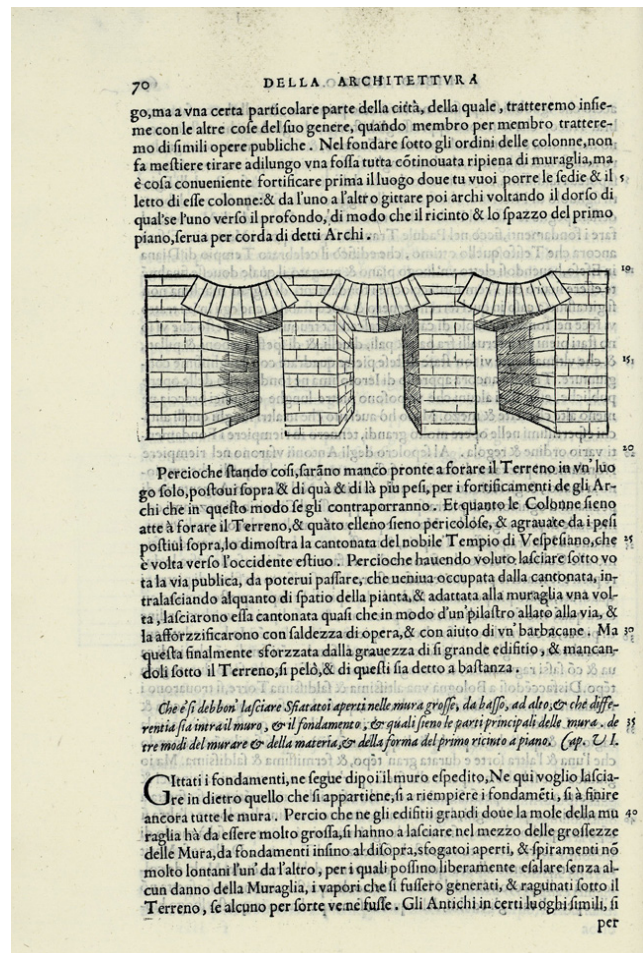 70 DELLA ARCHITETTVRA
go, ma a vna certa particolare parte della città, della quale, tratteremo insie-
me con le altre cose del suo genere, quando membro per membro trattere-
mo di simili opere publiche. Nel fondare sotto gli ordini delle colonne, non
fa mestiere tirare adilungo vna fossa tutta cōtinouata ripiena di muraglia, ma
è cosa conueniente fortificare prima il luogo doue tu vuoi porre le sedie & il 5
letto di esse colonne: & da l'uno a l'altro gittare poi archi voltando il dorso di
qual'se l'uno verso il profondo, di modo che il ricinto & lo spazzo del primo
piano, serua per corda di detti Archi.
10
15
20
Percioche stando cosi, sarāno manco pronte a forare il Terreno in vn' luo
go solo, postoui sopra & di quà & di là piu pesi, per i fortificamenti de gli Ar-
chi che in questo modo se gli contraporranno. Et quanto le Colonne sieno
atte à forare il Terreno, & quāto elleno sieno pericolose, & agrauate da i pesi
postiui sopra, lo dimostra la cantonata del nobile Tempio di Vespesiano, che 25
è volta verso l'occidente estiuo. Percioche hauendo voluto lasciare sotto vo
ta la via publica, da poterui passare, che ueniua occupata dalla cantonata, in-
tralasciando alquanto di spatio della pianta, & adattata alla muraglia vna vol-
ta, lasciarono essa cantonata quasi che in modo d'un'pilastro allato alla via, &
la afforzzificarono con saldezza di opera, & con aiuto di vn' barbacane. Ma 30
questa finalmente sforzzata dalla grauezza di si grande edifitio, & mancan-
doli sotto il Terreno, si pelò, & di questi sia detto a bastanza.
Che e' si debbon' lasciare Sfiatatoi aperti nelle mura grosse, da basso, ad alto; & che diffe-
rentia sia intra il muro, & il fondamento, & quali sieno le parti principali delle mura. de 35
tre modi del murare & della materia, & della forma del primo ricinto a piano. Cap. VI.
GIttati i fondamenti, ne segue dipoi il muro espedito, Ne qui voglio lascia-
re in dietro quello che si appartiene, si a riempiere i fondamēti, si à finire
ancora tutte le mura. Percio che ne gli edifitii grandi doue la mole della mu 40
raglia hà da essere molto grossa, si hanno a lasciare nel mezzo delle grossezze
delle Mura, da fondamenti insino al disopra, sfogatoi aperti, & spiramenti nō
molto lontani l'un' da l'altro, per i quali possino liberamente esalare senza al-
cun danno della Muraglia, i vapori che si fussero generati, & ragunati sotto il
Terreno, se alcuno per sorte ve ne fusse. Gli Antichi in certi luoghi simili, si
per